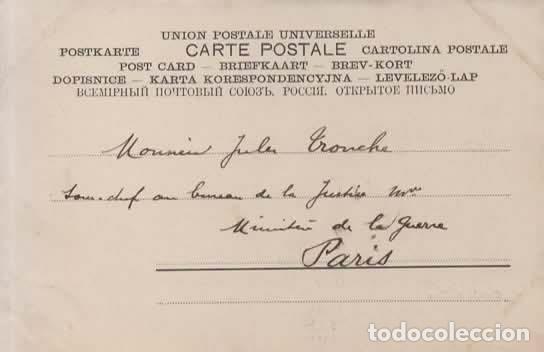 UNION POSTALE UNIVERSELLE
POSTKARTE CARTE POSTALE CARTOLINA POSTALE
POST CARD — BRIEFKAART — BREV-KORT
DOPISNICE — KARTA KORESPONDENCYJNA — LEVELEZŐ-LAP
ВСЕМІРНЫЙ ПОЧТОВЫЙ СОЮЗЪ. РОССІЯ. ОТКРЫТОЕ ПИСЬМО
Monsieur Jules Tronche
Sous-chef au bureau de la Justice Mre
Ministère de la Guerre
Paris
todocoleccion